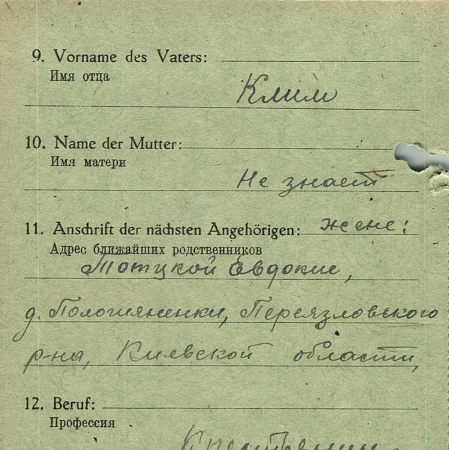 9. Vorname des Vaters:
Имя отца
Клим
10. Name der Mutter:
Имя матери
Не знает
11. Anschrift der nächsten Angehörigen: жене:
Адрес ближайших родственников
Тотцкой Евдокие,
д. Пологияненки, Переязловского
р-на, Киевской области,
12. Beruf:
Профессия
Крестьянин